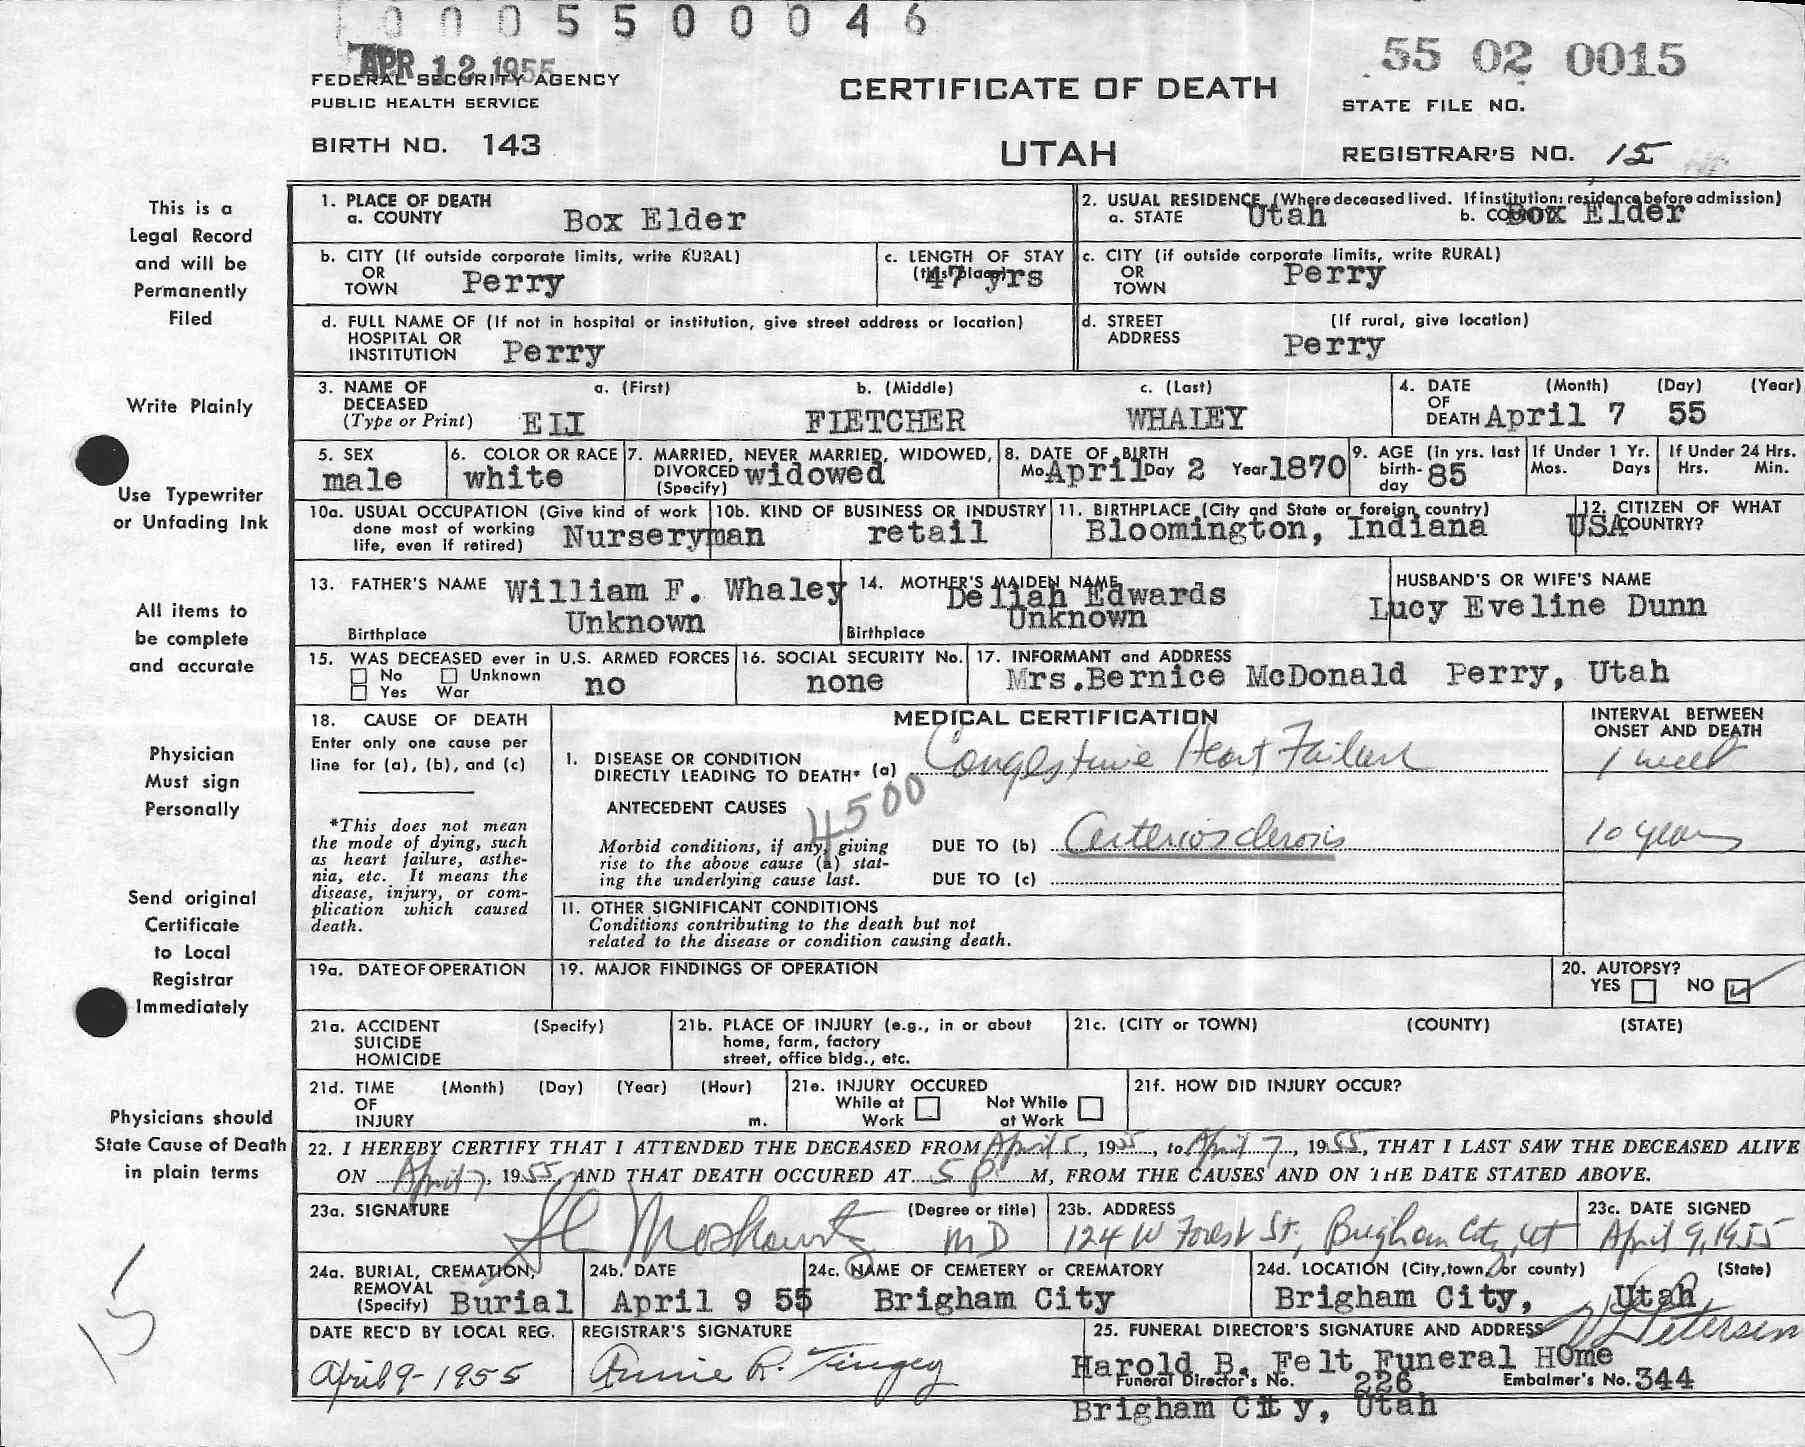 0 0 0 5 5 0 0 0 4 6
APR 12 1955
55 02 0015
FEDERAL SECURITY AGENCY
PUBLIC HEALTH SERVICE
CERTIFICATE OF DEATH
STATE FILE NO.
BIRTH NO. 143
UTAH
REGISTRAR'S NO. 15
This is a
Legal Record
and will be
Permanently
Filed
Write Plainly
Use Typewriter
or Unfading Ink
All items to
be complete
and accurate
Physician
Must sign
Personally
Send original
Certificate
to Local
Registrar
Immediately
Physicians should
State Cause of Death
in plain terms
15
1. PLACE OF DEATH
a. COUNTY Box Elder
2. USUAL RESIDENCE (Where deceased lived. If institution: residence before admission)
a. STATE Utah b. COUNTY Box Elder
b. CITY (If outside corporate limits, write RURAL)
OR
TOWN Perry
c. LENGTH OF STAY
(this place) 47 yrs
c. CITY (if outside corporate limits, write RURAL)
OR
TOWN Perry
d. FULL NAME OF (If not in hospital or institution, give street address or location)
HOSPITAL OR
INSTITUTION Perry
d. STREET (If rural, give location)
ADDRESS Perry
3. NAME OF a. (First) b. (Middle) c. (Last)
DECEASED
(Type or Print) ELI FLETCHER WHALEY
4. DATE (Month) (Day) (Year)
OF
DEATH April 7 55
5. SEX
male
6. COLOR OR RACE
white
7. MARRIED, NEVER MARRIED, WIDOWED,
DIVORCED widowed
(Specify)
8. DATE OF BIRTH
Mo. April Day 2 Year 1870
9. AGE (in yrs. last
birth- 85
day
If Under 1 Yr.
Mos. Days
If Under 24 Hrs.
Hrs. Min.
10a. USUAL OCCUPATION (Give kind of work
done most of working
life, even if retired) Nurseryman
10b. KIND OF BUSINESS OR INDUSTRY
retail
11. BIRTHPLACE (City and State or foreign country)
Bloomington, Indiana
12. CITIZEN OF WHAT
COUNTRY? USA
13. FATHER'S NAME William F. Whaley
Birthplace Unknown
14. MOTHER'S MAIDEN NAME
Deliah Edwards
Birthplace Unknown
HUSBAND'S OR WIFE'S NAME
Lucy Eveline Dunn
15. WAS DECEASED ever in U.S. ARMED FORCES
No Unknown
Yes War no
16. SOCIAL SECURITY No.
none
17. INFORMANT and ADDRESS
Mrs.Bernice McDonald Perry, Utah
18. CAUSE OF DEATH
Enter only one cause per
line for (a), (b), and (c)
*This does not mean
the mode of dying, such
as heart failure, asthe-
nia, etc. It means the
disease, injury, or com-
plication which caused
death.
MEDICAL CERTIFICATION
INTERVAL BETWEEN
ONSET AND DEATH
I. DISEASE OR CONDITION
DIRECTLY LEADING TO DEATH* (a) Congestive Heart Failure 1 week
ANTECEDENT CAUSES 4500
Morbid conditions, if any, giving
rise to the above cause (a) stat-
ing the underlying cause last.
DUE TO (b) Arteriosclerosis 10 years
DUE TO (c)
II. OTHER SIGNIFICANT CONDITIONS
Conditions contributing to the death but not
related to the disease or condition causing death.
19a. DATE OF OPERATION
19. MAJOR FINDINGS OF OPERATION
20. AUTOPSY?
YES NO
21a. ACCIDENT (Specify)
SUICIDE
HOMICIDE
21b. PLACE OF INJURY (e.g., in or about
home, farm, factory
street, office bldg., etc.
21c. (CITY or TOWN) (COUNTY) (STATE)
21d. TIME (Month) (Day) (Year) (Hour)
OF
INJURY m.
21e. INJURY OCCURED
While at Not While
Work at Work
21f. HOW DID INJURY OCCUR?
22. I HEREBY CERTIFY THAT I ATTENDED THE DECEASED FROM April 5, 1955, to April 7, 1955, THAT I LAST SAW THE DECEASED ALIVE
ON April 7, 1955, AND THAT DEATH OCCURED AT 5 P M, FROM THE CAUSES AND ON THE DATE STATED ABOVE.
23a. SIGNATURE (Degree or title)
Moskowitz MD
23b. ADDRESS
124 W Forest St., Brigham City, Ut
23c. DATE SIGNED
April 9, 1955
24a. BURIAL, CREMATION,
REMOVAL
(Specify) Burial
24b. DATE
April 9 55
24c. NAME OF CEMETERY or CREMATORY
Brigham City
24d. LOCATION (City, town, or county) (State)
Brigham City, Utah
DATE REC'D BY LOCAL REG.
April 9-1955
REGISTRAR'S SIGNATURE
Annie R. Tingey
25. FUNERAL DIRECTOR'S SIGNATURE AND ADDRESS Petersen
Harold B. Felt Funeral HOme
Funeral Director's No. 226 Embalmer's No. 344
Brigham City, Utah